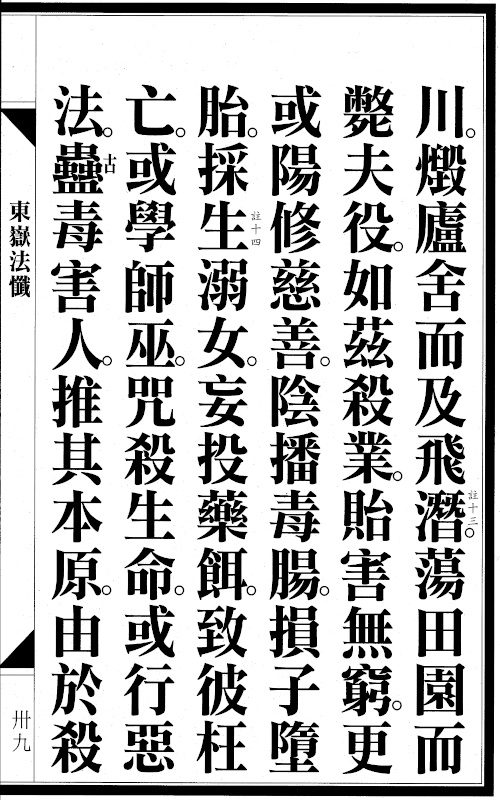 川。燬廬舍而及飛潛註十三。蕩田園而
斃夫役。如茲殺業。貽害無窮。更
或陽修慈善。陰播毒腸。損子墮
胎。採生註十四溺女。妄投藥餌。致彼枉
亡。或學師巫。咒殺生命。或行惡
法。蠱古毒害人。推其本原。由於殺
東嶽法懺
卅九